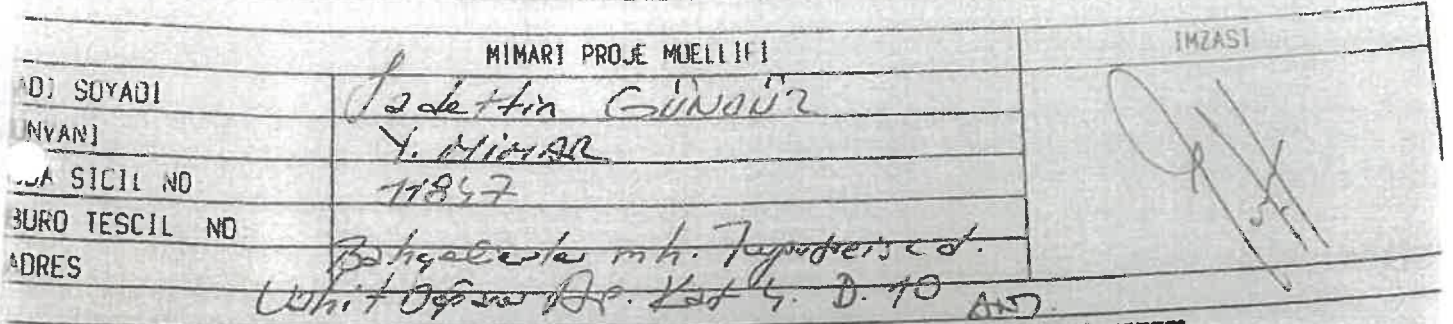 MIMARI PROJE MUELLIFI IMZASI
ADI SOYADI Sadettin GÜNDÜZ
UNVANI Y. MİMAR
ODA SICIL NO 11847
BURO TESCIL NO
ADRES Bahçelievler mh. cd.
Ap. Kat 4. D. 10 ANT.